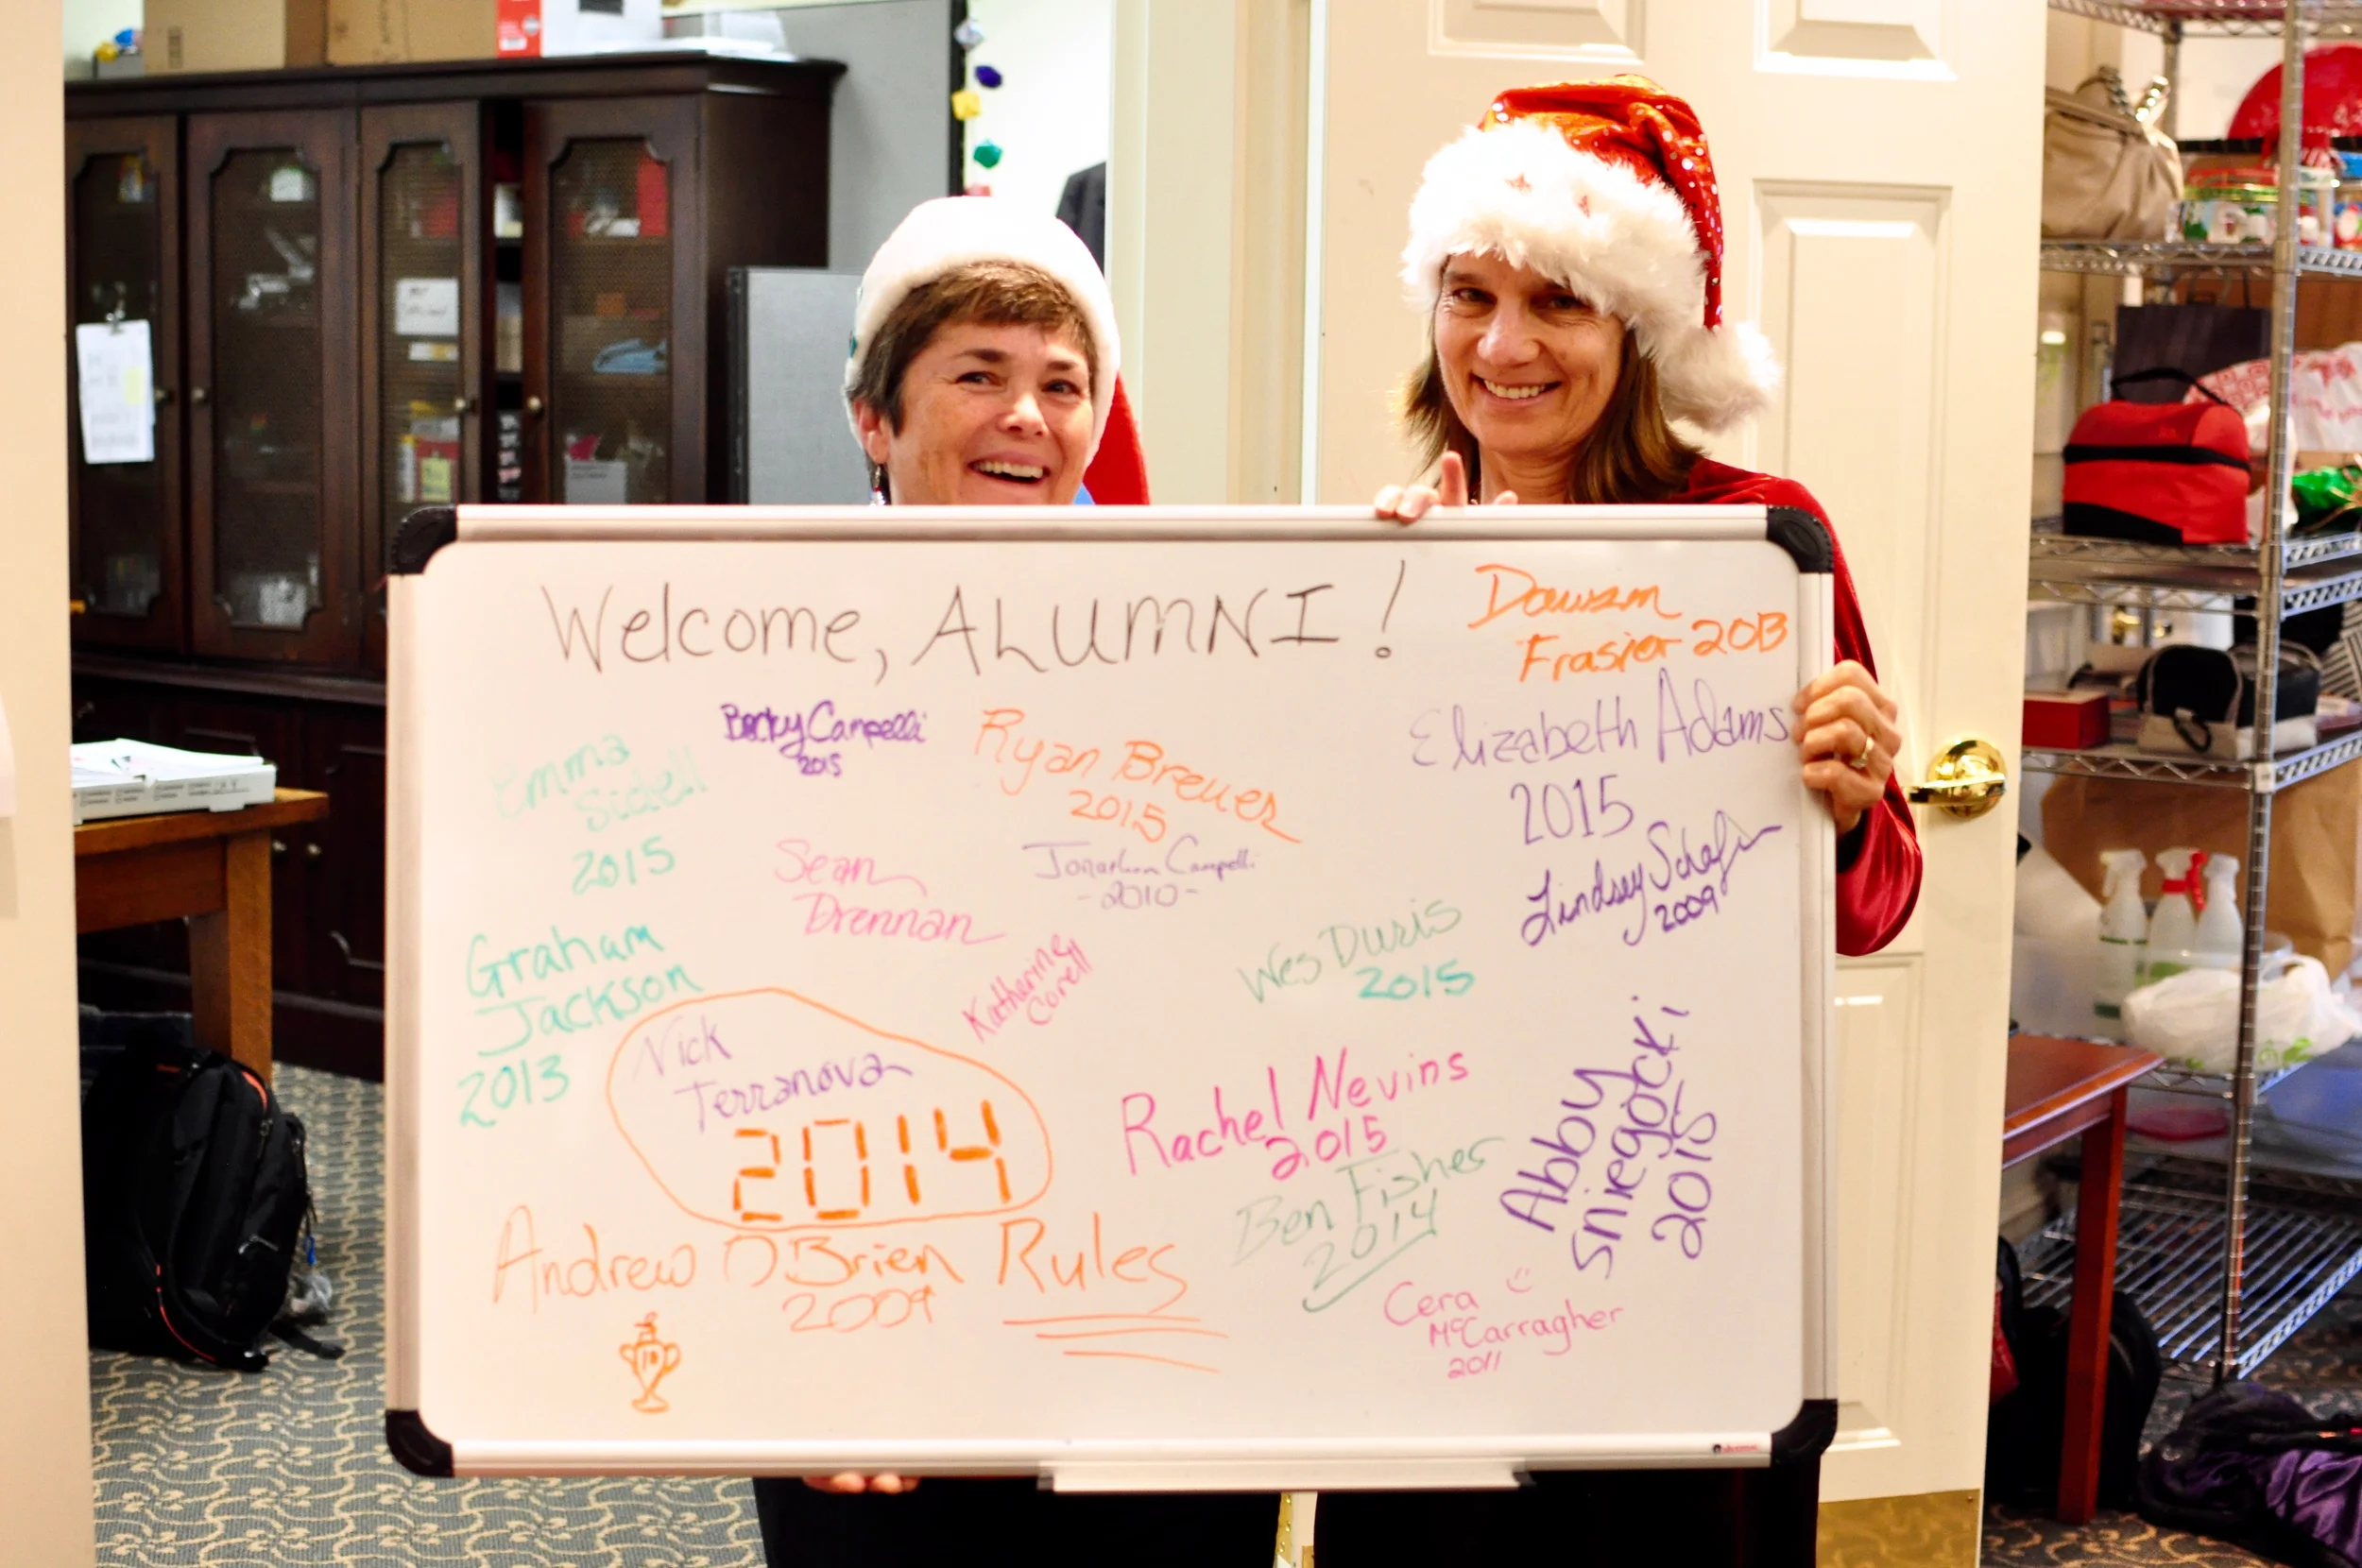 Welcome, ALUMNI!
Dawson
Frasier 2013
Becky Campelli
2015
Ryan Brewer
2015
Elizabeth Adams
2015
Emma
Sidell
2015
Sean
Drennan
Jonathan Campelli
-2010-
Lindsey
2009
Graham
Jackson
2013
Katherine
Corell
Wes Duris
2015
Nick
Terranova
2014
Rachel Nevins
2015
Ben Fisher
2014
Abby
Sniegocki
2015
Andrew O'Brien Rules
2009
Cera
McCarragher
2011